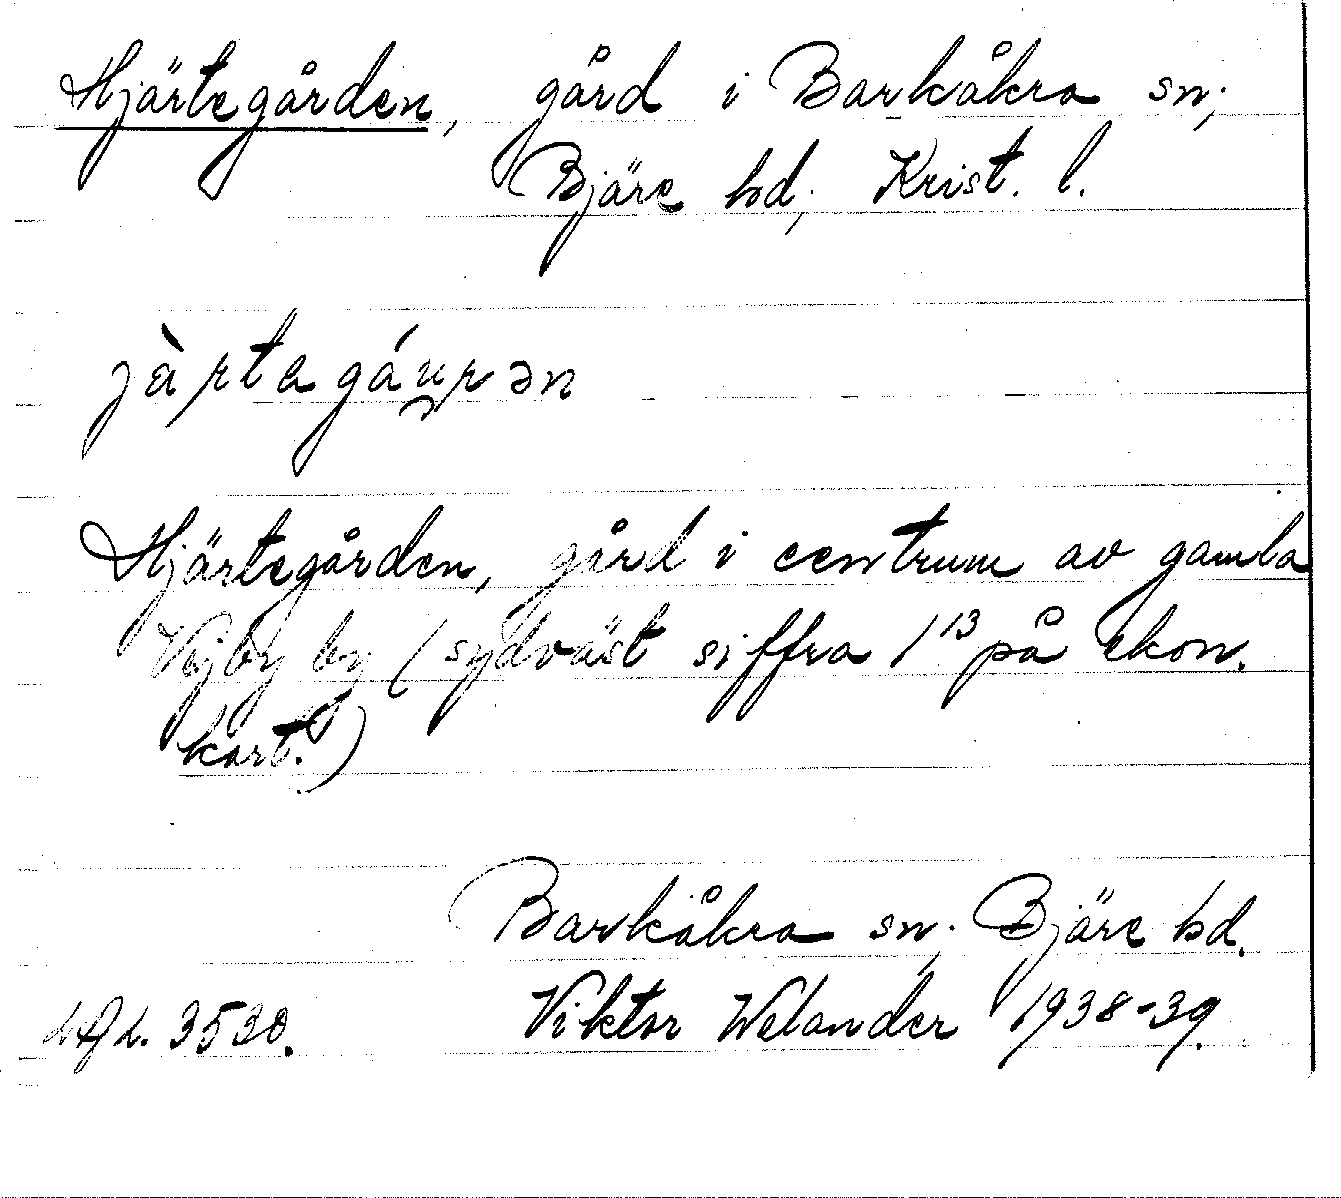 Hjärtegården, gård i Barkåkra sn;
Bjäre hd; Krist. l.
jàrtagáu̯rən
Hjärtegården, gård i centrum av gamla
Vejby by (sydväst siffra 1¹³ på ekon.
kart.)
Barkåkra sn. Bjäre hd.
3530. Viktor Welander 1938-39.